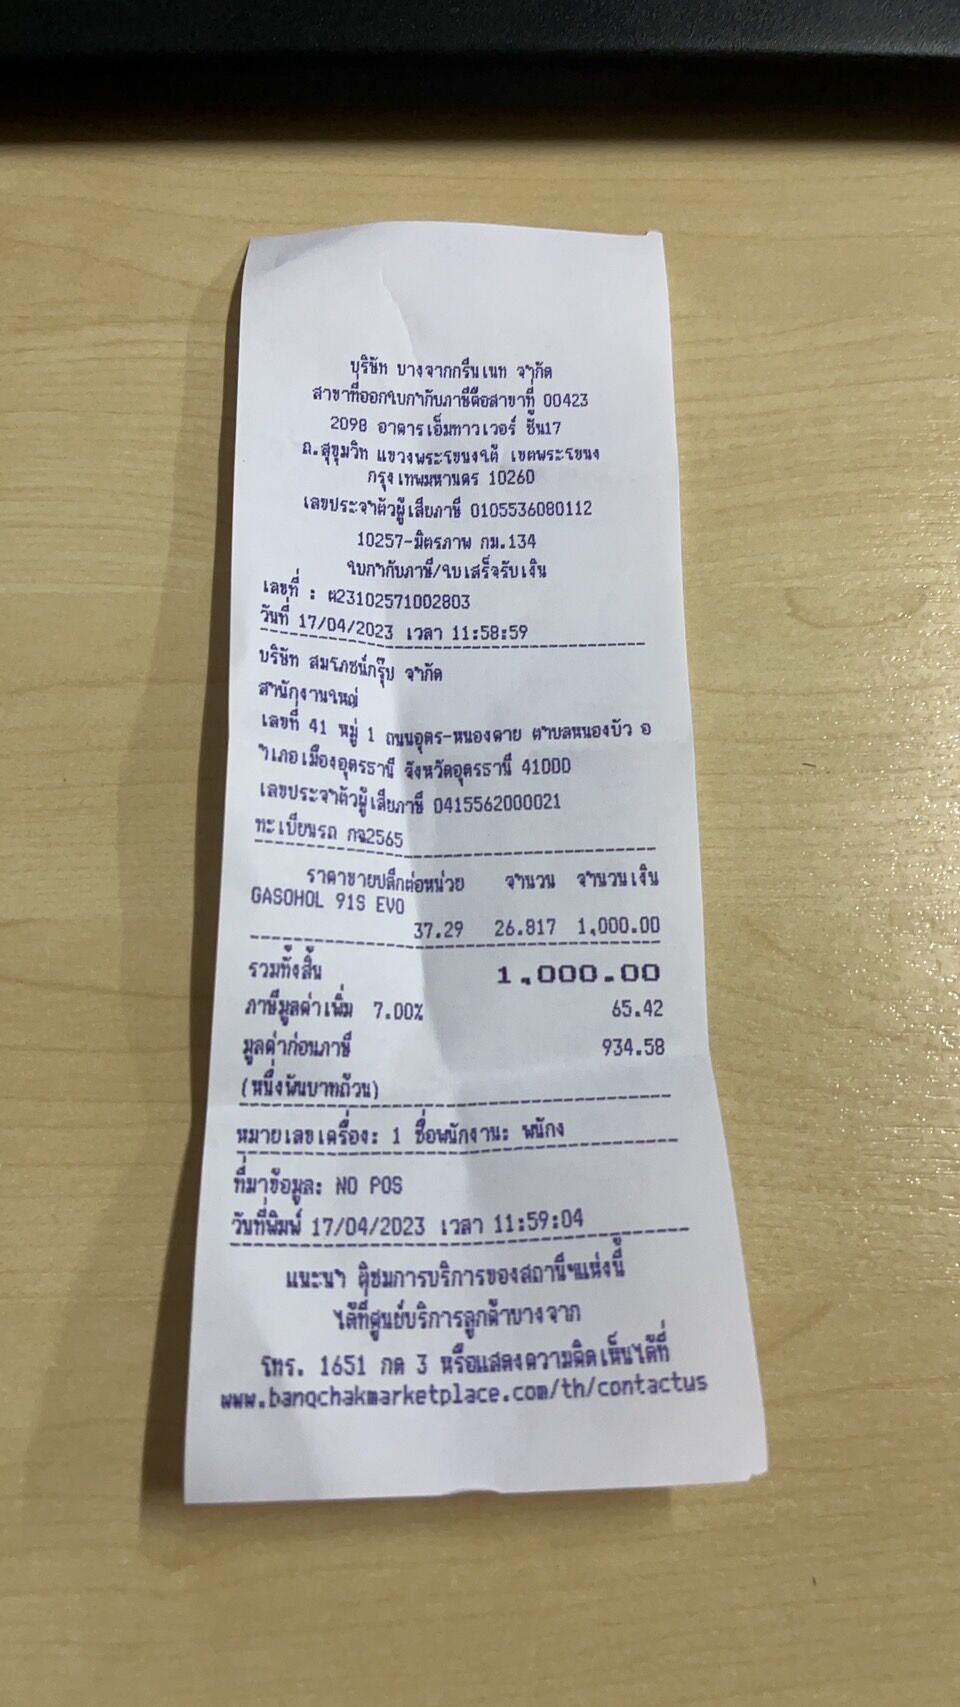 บริษัท บางจากกรีนเนท จำกัด
สาขาที่ออกใบกำกับภาษีคือสาขาที่ 00423
2098 อาคารเอ็มทาวเวอร์ ชั้น17
ถ.สุขุมวิท แขวงพระโขนงใต้ เขตพระโขนง
กรุงเทพมหานคร 10260
เลขประจำตัวผู้เสียภาษี 0105536080112
10257-มิตรภาพ กม.134
ใบกำกับภาษี/ใบเสร็จรับเงิน
เลขที่ : ต23102571002803
วันที่ 17/04/2023 เวลา 11:58:59
บริษัท สมโภชน์กรุ๊ป จำกัด
สำนักงานใหญ่
เลขที่ 41 หมู่ 1 ถนนอุดร-หนองคาย ตำบลหนองบัว อ
ำเภอเมืองอุดรธานี จังหวัดอุดรธานี 41000
เลขประจำตัวผู้เสียภาษี 0415562000021
ทะเบียนรถ กฉ2565
ราคาขายปลีกต่อหน่วย จำนวน จำนวนเงิน
GASOHOL 91S EVO
37.29 26.817 1,000.00
รวมทั้งสิ้น 1,000.00
ภาษีมูลค่าเพิ่ม 7.00% 65.42
มูลค่าก่อนภาษี 934.58
(หนึ่งพันบาทถ้วน)
หมายเลขเครื่อง: 1 ชื่อพนักงาน: พนักง
ที่มาข้อมูล: NO POS
วันที่พิมพ์ 17/04/2023 เวลา 11:59:04
แนะนำ ติชมการบริการของสถานีฯแห่งนี้
ได้ที่ศูนย์บริการลูกค้าบางจาก
โทร. 1651 กด 3 หรือแสดงความคิดเห็นได้ที่
www.bangchakmarketplace.com/th/contactus